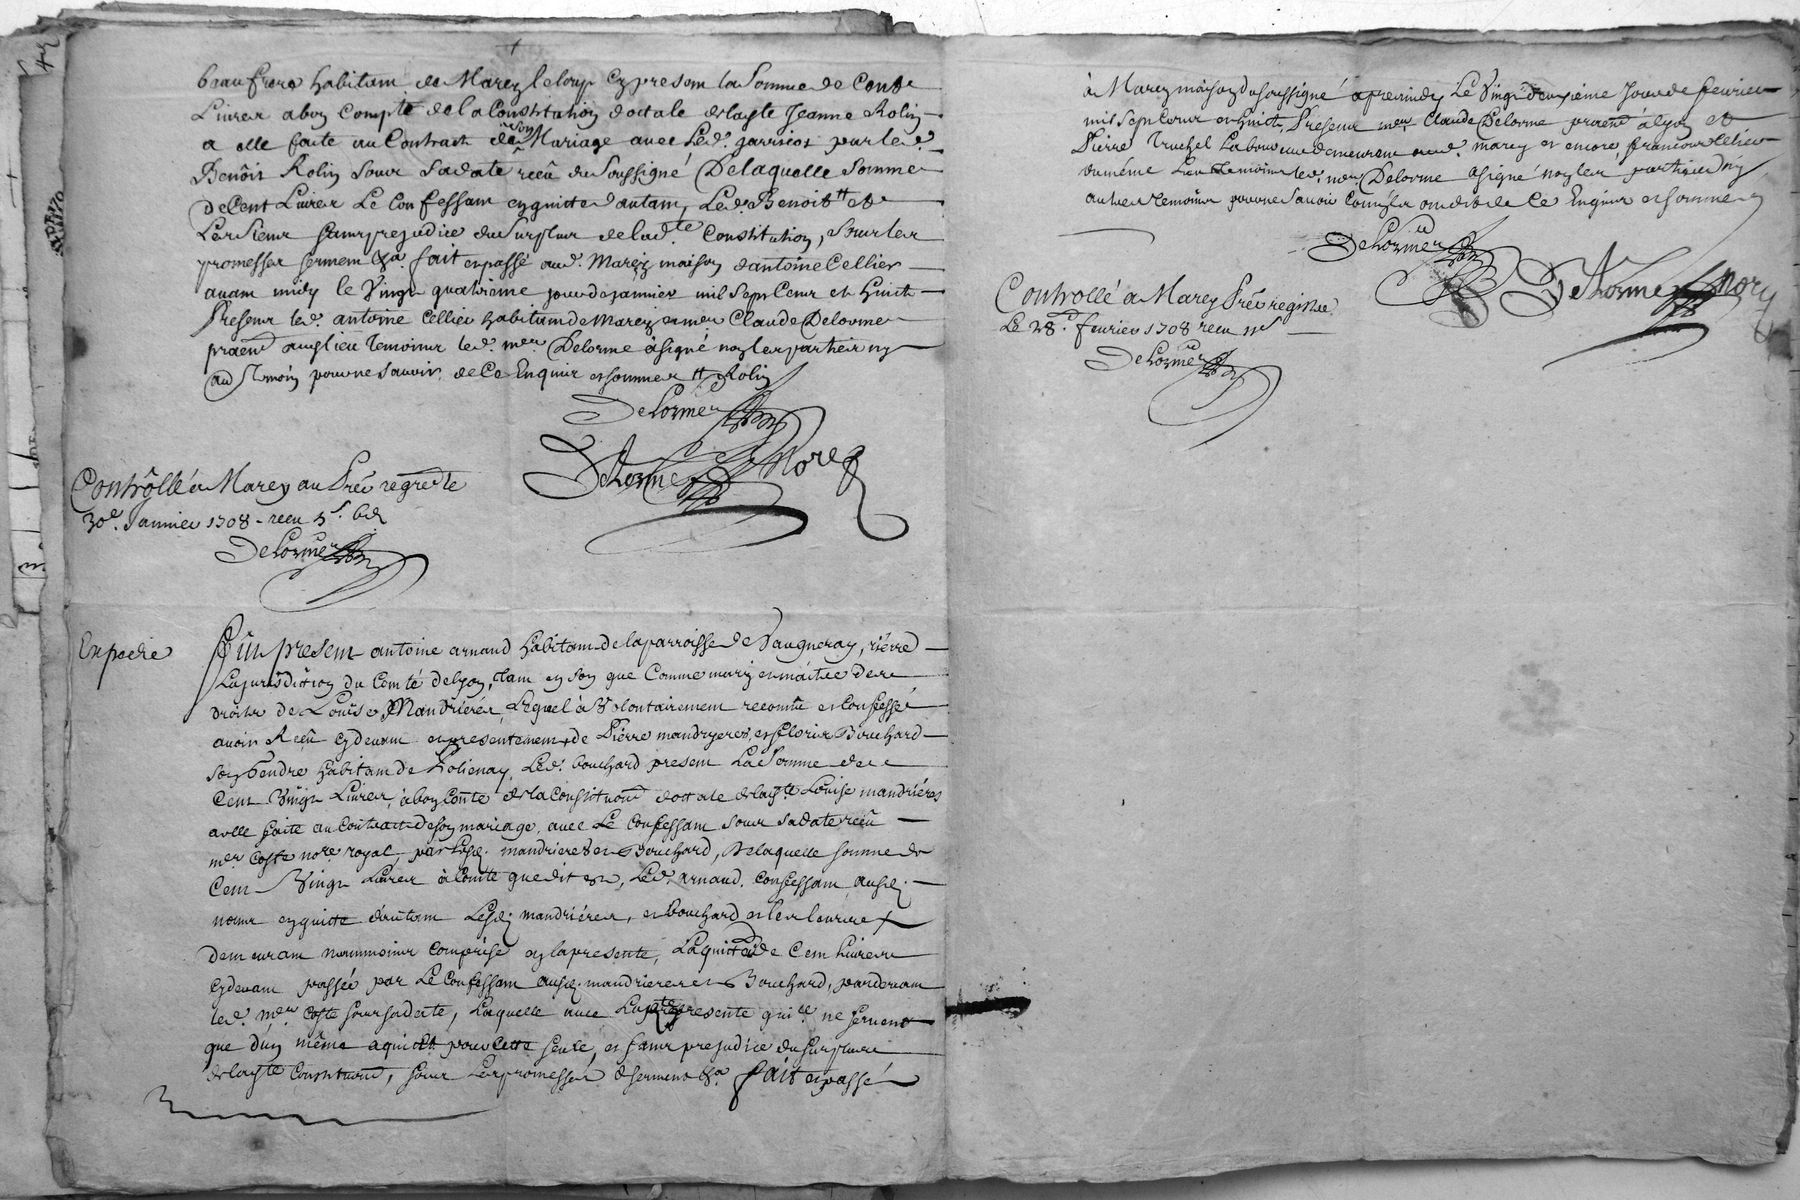 beaufrere habitant de Marcy le loup cy present la somme de Cent
Livres a bon compte de la Constitution dottale de laditte Jeanne Rolin
a elle faite au Contract de son Mariage avec led. par led.
Benôit Rolin sous sa datte reçû du soussigné De laquelle somme
de Cent Livres Le Confessant en quitte d'autant, Led. Benoit et
Les siens sans prejudice du surplus de lad.te Constitution, sous les
promesses serment &a. fait et passé aud. Marcy maison d'antoine Cellier
avant midy le vingt quatrieme jour de janvier mil sept cent et huict
Present led. antoine Cellier habitant de Marcy et me.r Claude Delorme
temoins led. me.r Delorme a signé non les parties ny
au temoin pour ne savoir, de Ce Enquis et sommes Rolin
DeLorme
DeLorme No.re R
Controllé a Marcy au reg.re le
30.e Janvier 1708 - receu 5.s 6d
DeLorme
Expedié
Fut present antoine arnaud habitant de la parroisse de Vaugneray, rierre
La jurisdiction du Comté de Lyon, Tant en son que Comme mary et maitre des
droits de Louise Mandrieres, Lequel a volontairement reconnu et confessé
avoir Reçû cy devant et presentement de Pierre mandryeres, et Floris Bouchard
son gendre habitant de Polienay, Led. bouchard present La somme de
Cent Vingt Livres, a bon Conte de la Constitution dottale de laditte Louise mandriéres
a elle faite au Contract de son mariage, avec Le Confessant sous sa datte reçû
me.r Coste no.re royal, par lesd. mandrieres et Bouchard, De laquelle somme de
Cent Vingt Livres à Conte que dit est, Led. arnaud, Confessant ausd.
noms en quitte d'autant Lesd. mandriéres, et bouchard et les leurs
demeurant neanmoins comprise en la presente, La quittance de Cent Livres
cy devant passée par Le Confessant ausd. mandrieres et Bouchard, pardevant
led. me.r Coste sous sa datte, Laquelle avec La presente ne servent
que d'un même aquict pour cette seule, et sans prejudice du surplus
de laditte Constitution, sous Les promesses serment &a. fait et passé
à Marcy maison du soussigné apres midy Le vingt deuxieme Jour de fevrier
mil sept cent et huict, Present me.r Claude DeLorme à Lyon et
Pierre Truchet Laboureur demeurant aud. marcy et encore, francois Cellier
du même Lieu temoins led. me.r Delorme a signé non les parties ny
autres temoins pour ne savoir de ce Enquis et sommes
DeLorme
DeLorme No.re
Controllé a Marcy registre
Le 28. fevrier 1708 receu
DeLorme